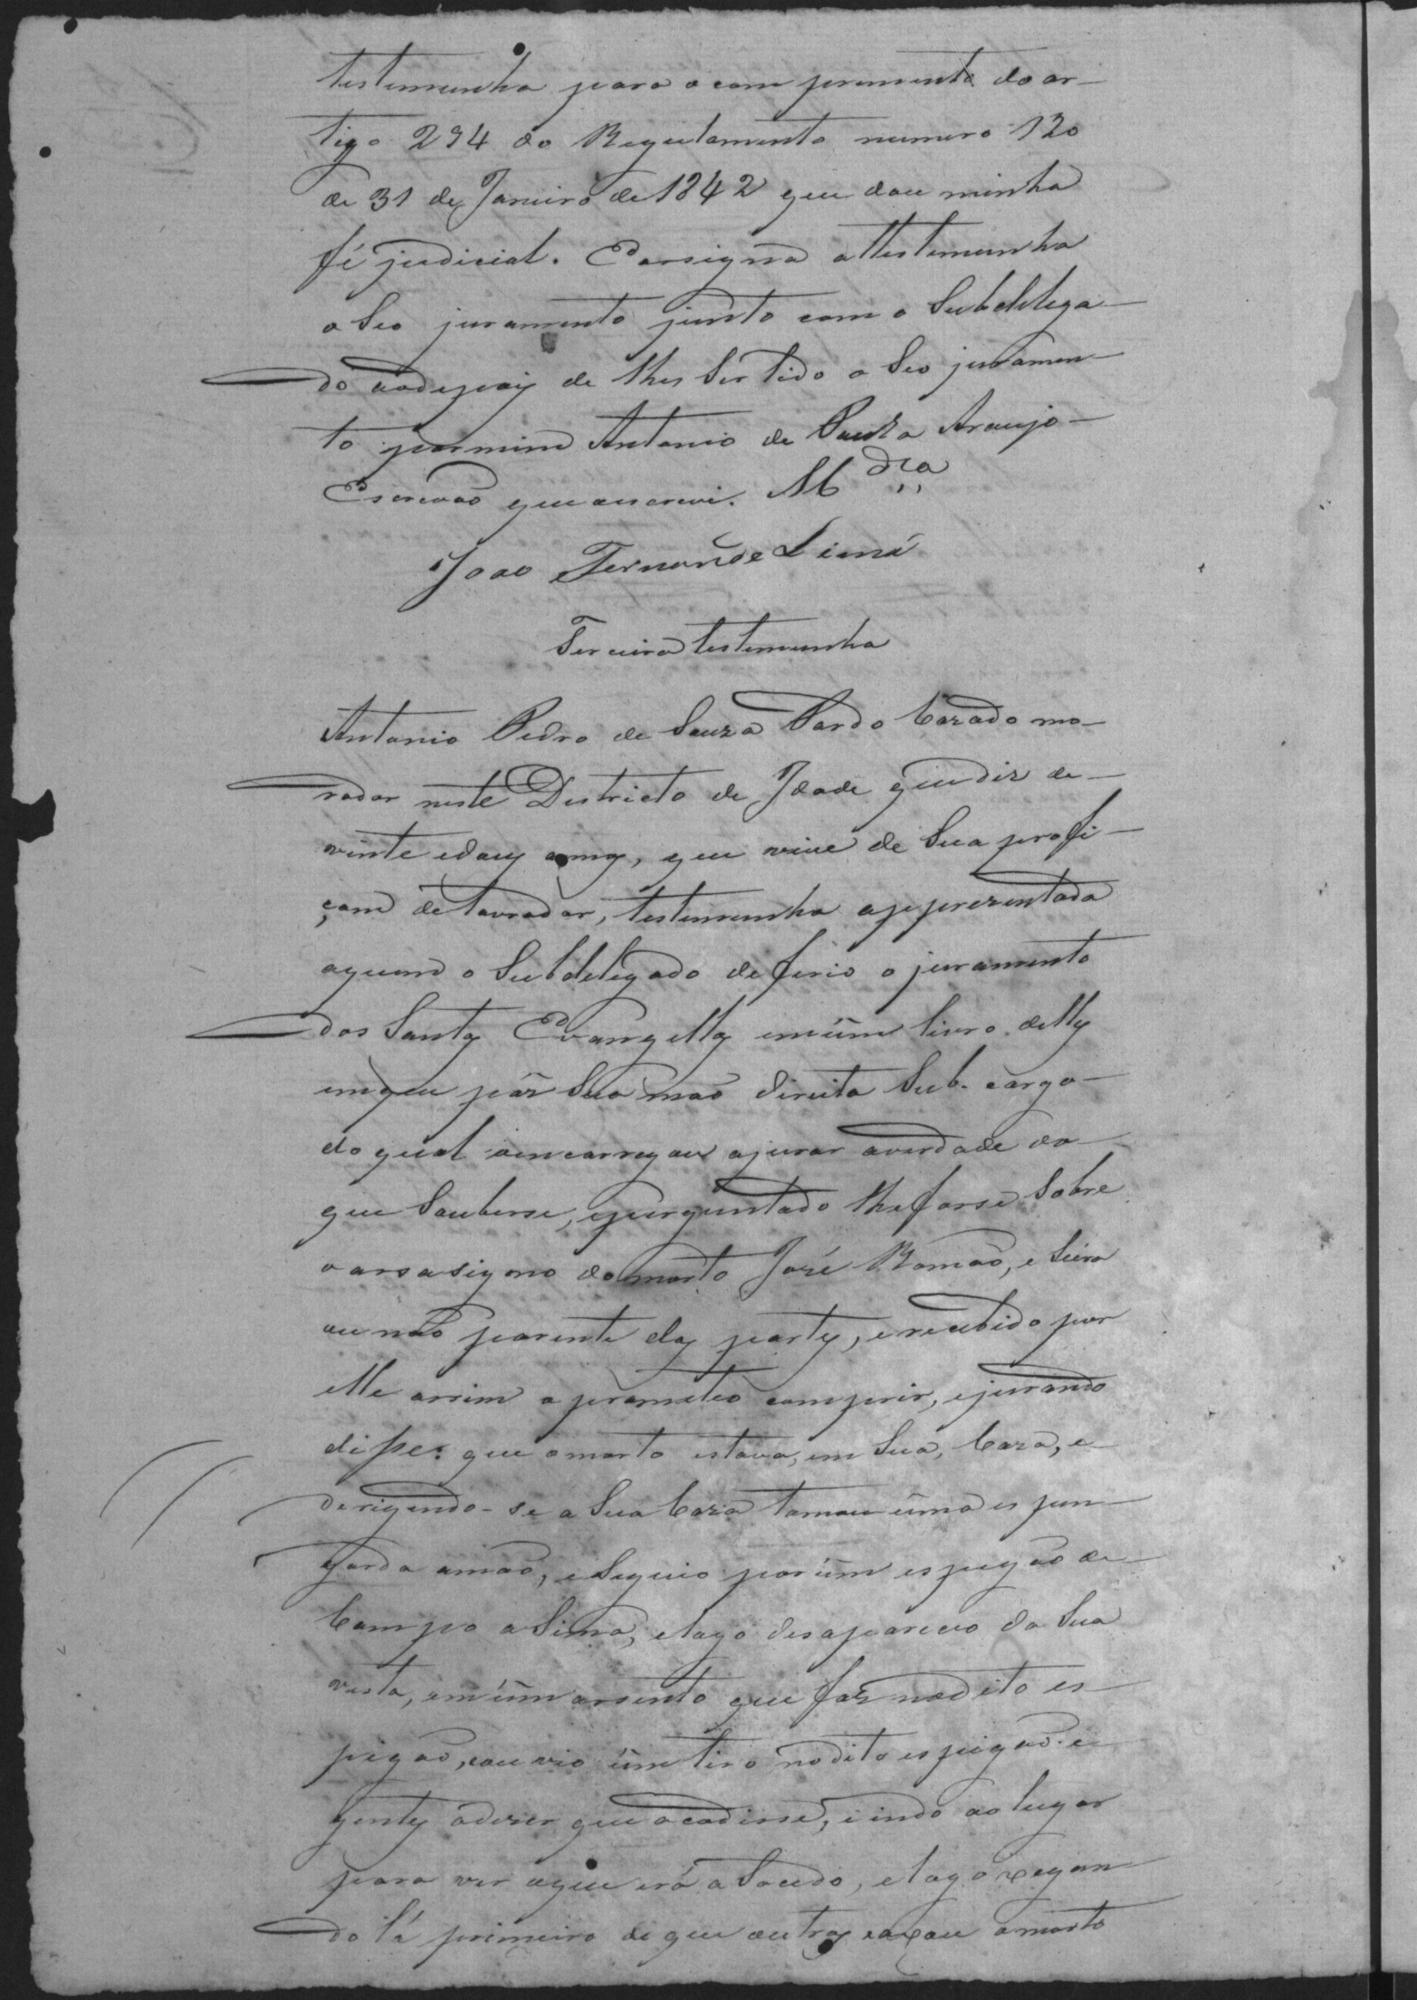 testemunha para o comprimento do ar-
tigo 294 do Regulamento numero 120
de 31 de Janeiro de 1842 que dou minha
fé judicial. Consigna a testemunha
o Seo juramento junto com o Subdelega-
do aodepoiz de lhes Ser lido o Seo juramen-
to por mim Antonio de Souza Araujo-
Escrivaõ que escrevi. M dra
Joao Fernande Lima
Terceira testemunha
Antonio Pedro de Souza Pardo Cazado mo-
rador neste Destricto de Idade que diz de-
vinte edous annos, que vive de Sua profi-
çam de lavrador, testemunha appresentada
aquem o Subdelegado deferio o juramento
dos Santos Evangellos em um livro delles
em que pôz Sua maõ direita Sub. cargo-
do qual o encarregou ajurar averdade do-
que Soubesse, e perguntado lhe forse Sobre
o arsasigno do morto José Ramaõ, e Siera
ou naõ parente das partes, e recebido por
elle assim o prometeo comprir, e jurando
disse: que o morto estava, em Sua, Caza, e-
derigendo-se a Sua Caza tomou uma espin-
garda amaõ, e Seguio por um espigaõ de-
Campo a Sima, e logo desapareceo da Sua
vista, em um arsento que faz no dito es-
pigaõ, e ouvio um tiro no dito espigaõ e-
gentes adizer que acodisse, e indo ao lugar
para ver o que erá a Socedo, e logo xegan-
do lá primeiro do que outros axou o morto